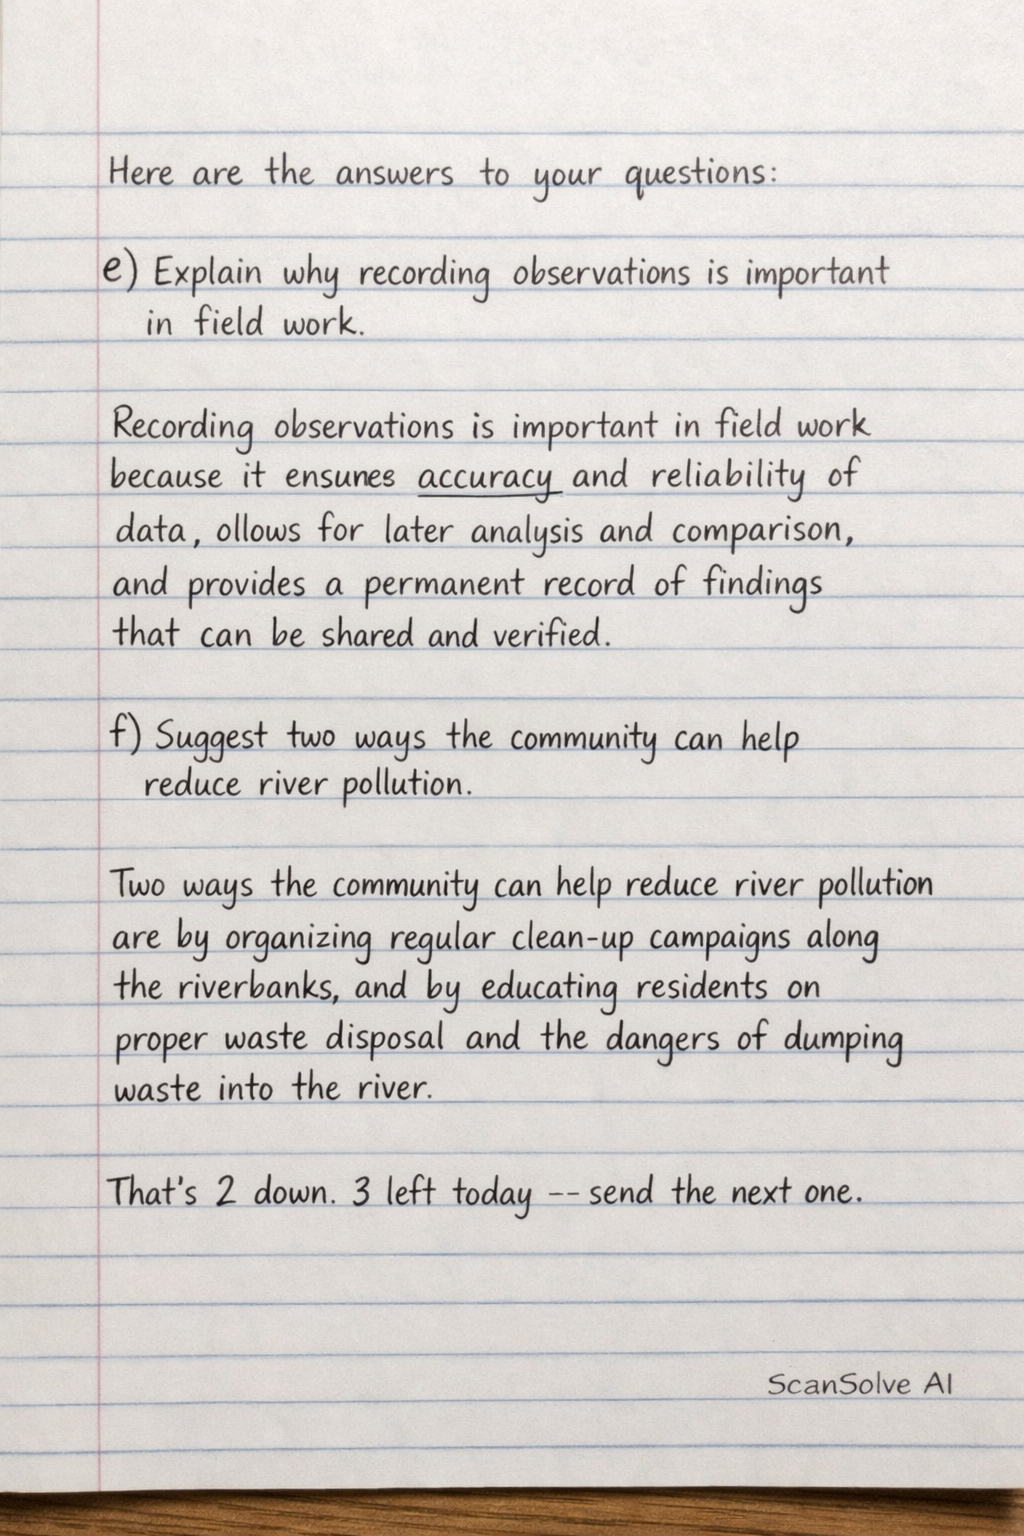 Here are the answers to your questions:
e) Explain why recording observations is important
in field work.
Recording observations is important in field work
because it ensunes accuracy and reliability of
data, ollows for later analysis and comparison,
and provides a permanent record of findings
that can be shared and verified.
f) Suggest two ways the community can help
reduce river pollution.
Two ways the community can help reduce river pollution
are by organizing regular clean-up campaigns along
the riverbanks, and by educating residents on
proper waste disposal and the dangers of dumping
waste into the river.
That's 2 down. 3 left today -- send the next one.
ScanSolve AI